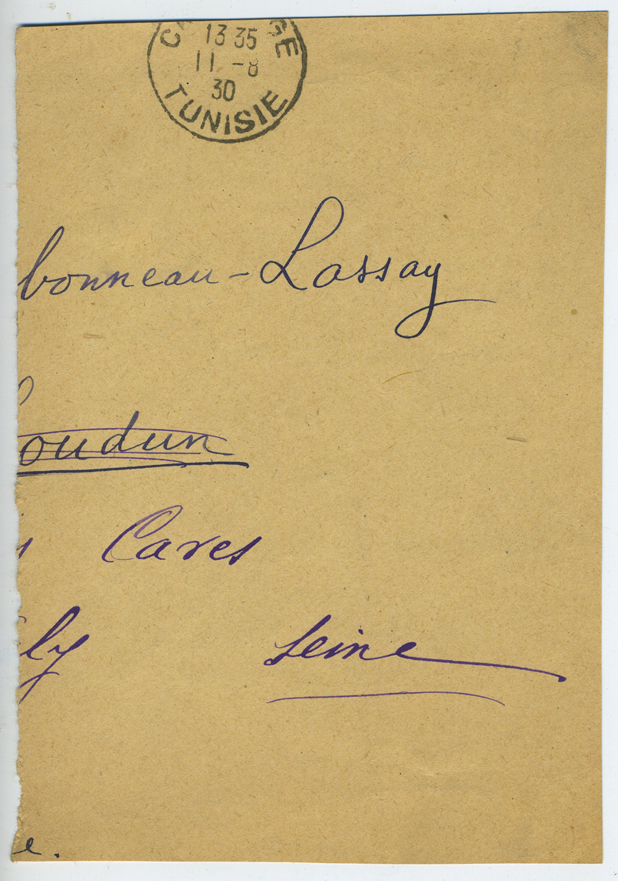 13 35
11 -8
30
TUNISIE
bonneau-Lassay
oudun
Caves
ly seine
e.